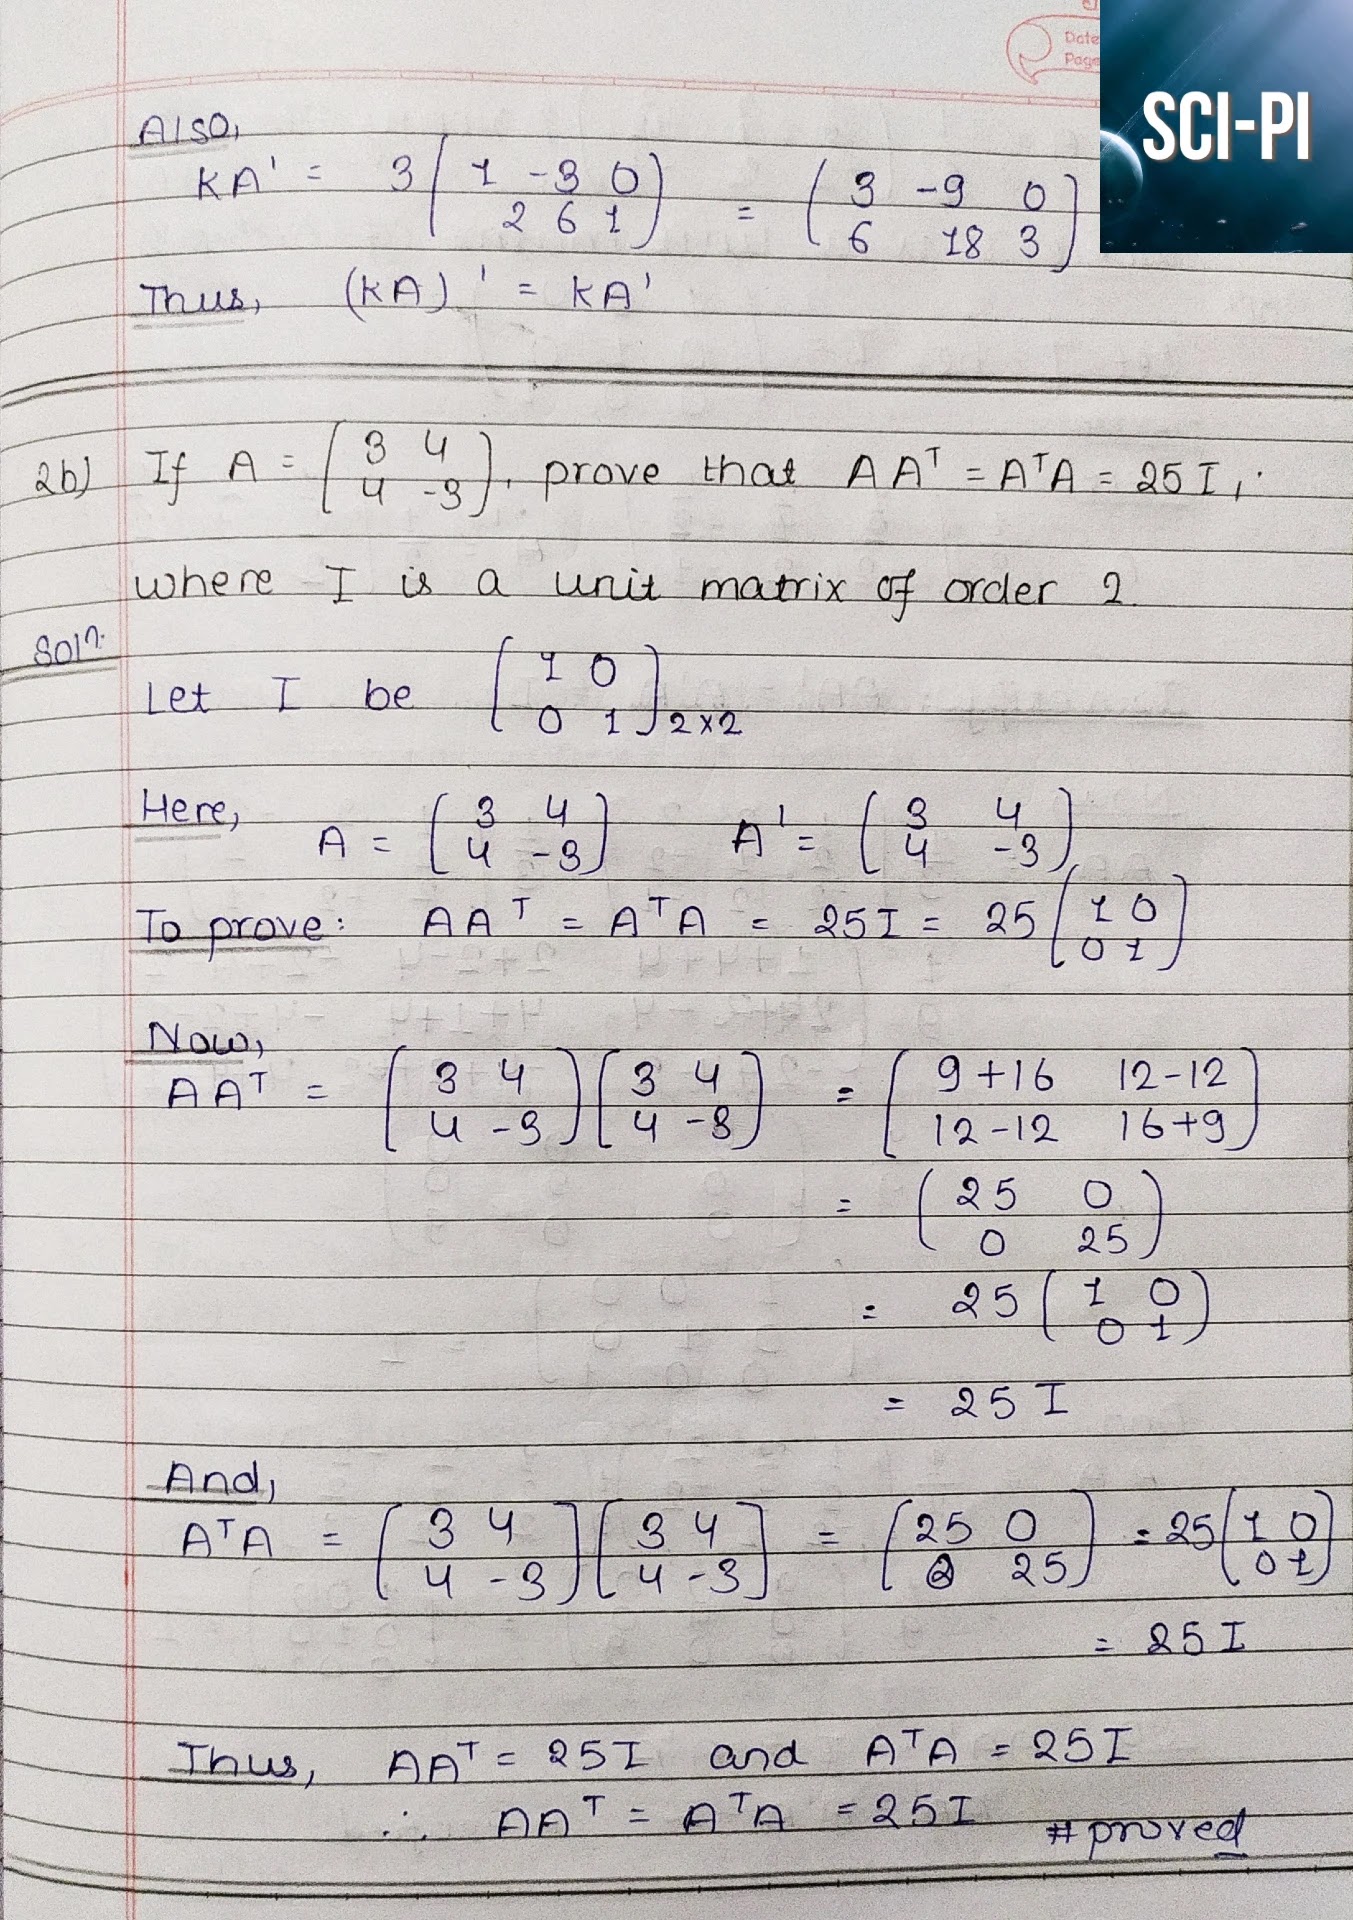 Date
Page
SCI-PI
Also,
KA' = 3 [1 -3 0
2 6 1] = [3 -9 0
6 18 3]
Thus, (KA)' = KA'
2b) If A = [3 4
4 -3], prove that AAᵀ = AᵀA = 25I,
where I is a unit matrix of order 2.
Solⁿ.
Let I be [1 0
0 1] 2×2
Here, A = [3 4
4 -3] A' = [3 4
4 -3]
To prove: AAᵀ = AᵀA = 25I = 25 [1 0
0 1]
Now,
AAᵀ = [3 4
4 -3] [3 4
4 -3] = [9+16 12-12
12-12 16+9]
= [25 0
0 25]
= 25 [1 0
0 1]
= 25I
And,
AᵀA = [3 4
4 -3] [3 4
4 -3] = [25 0
0 25] = 25 [1 0
0 1]
= 25I
Thus, AAᵀ = 25I and AᵀA = 25I
∴ AAᵀ = AᵀA = 25I #proved